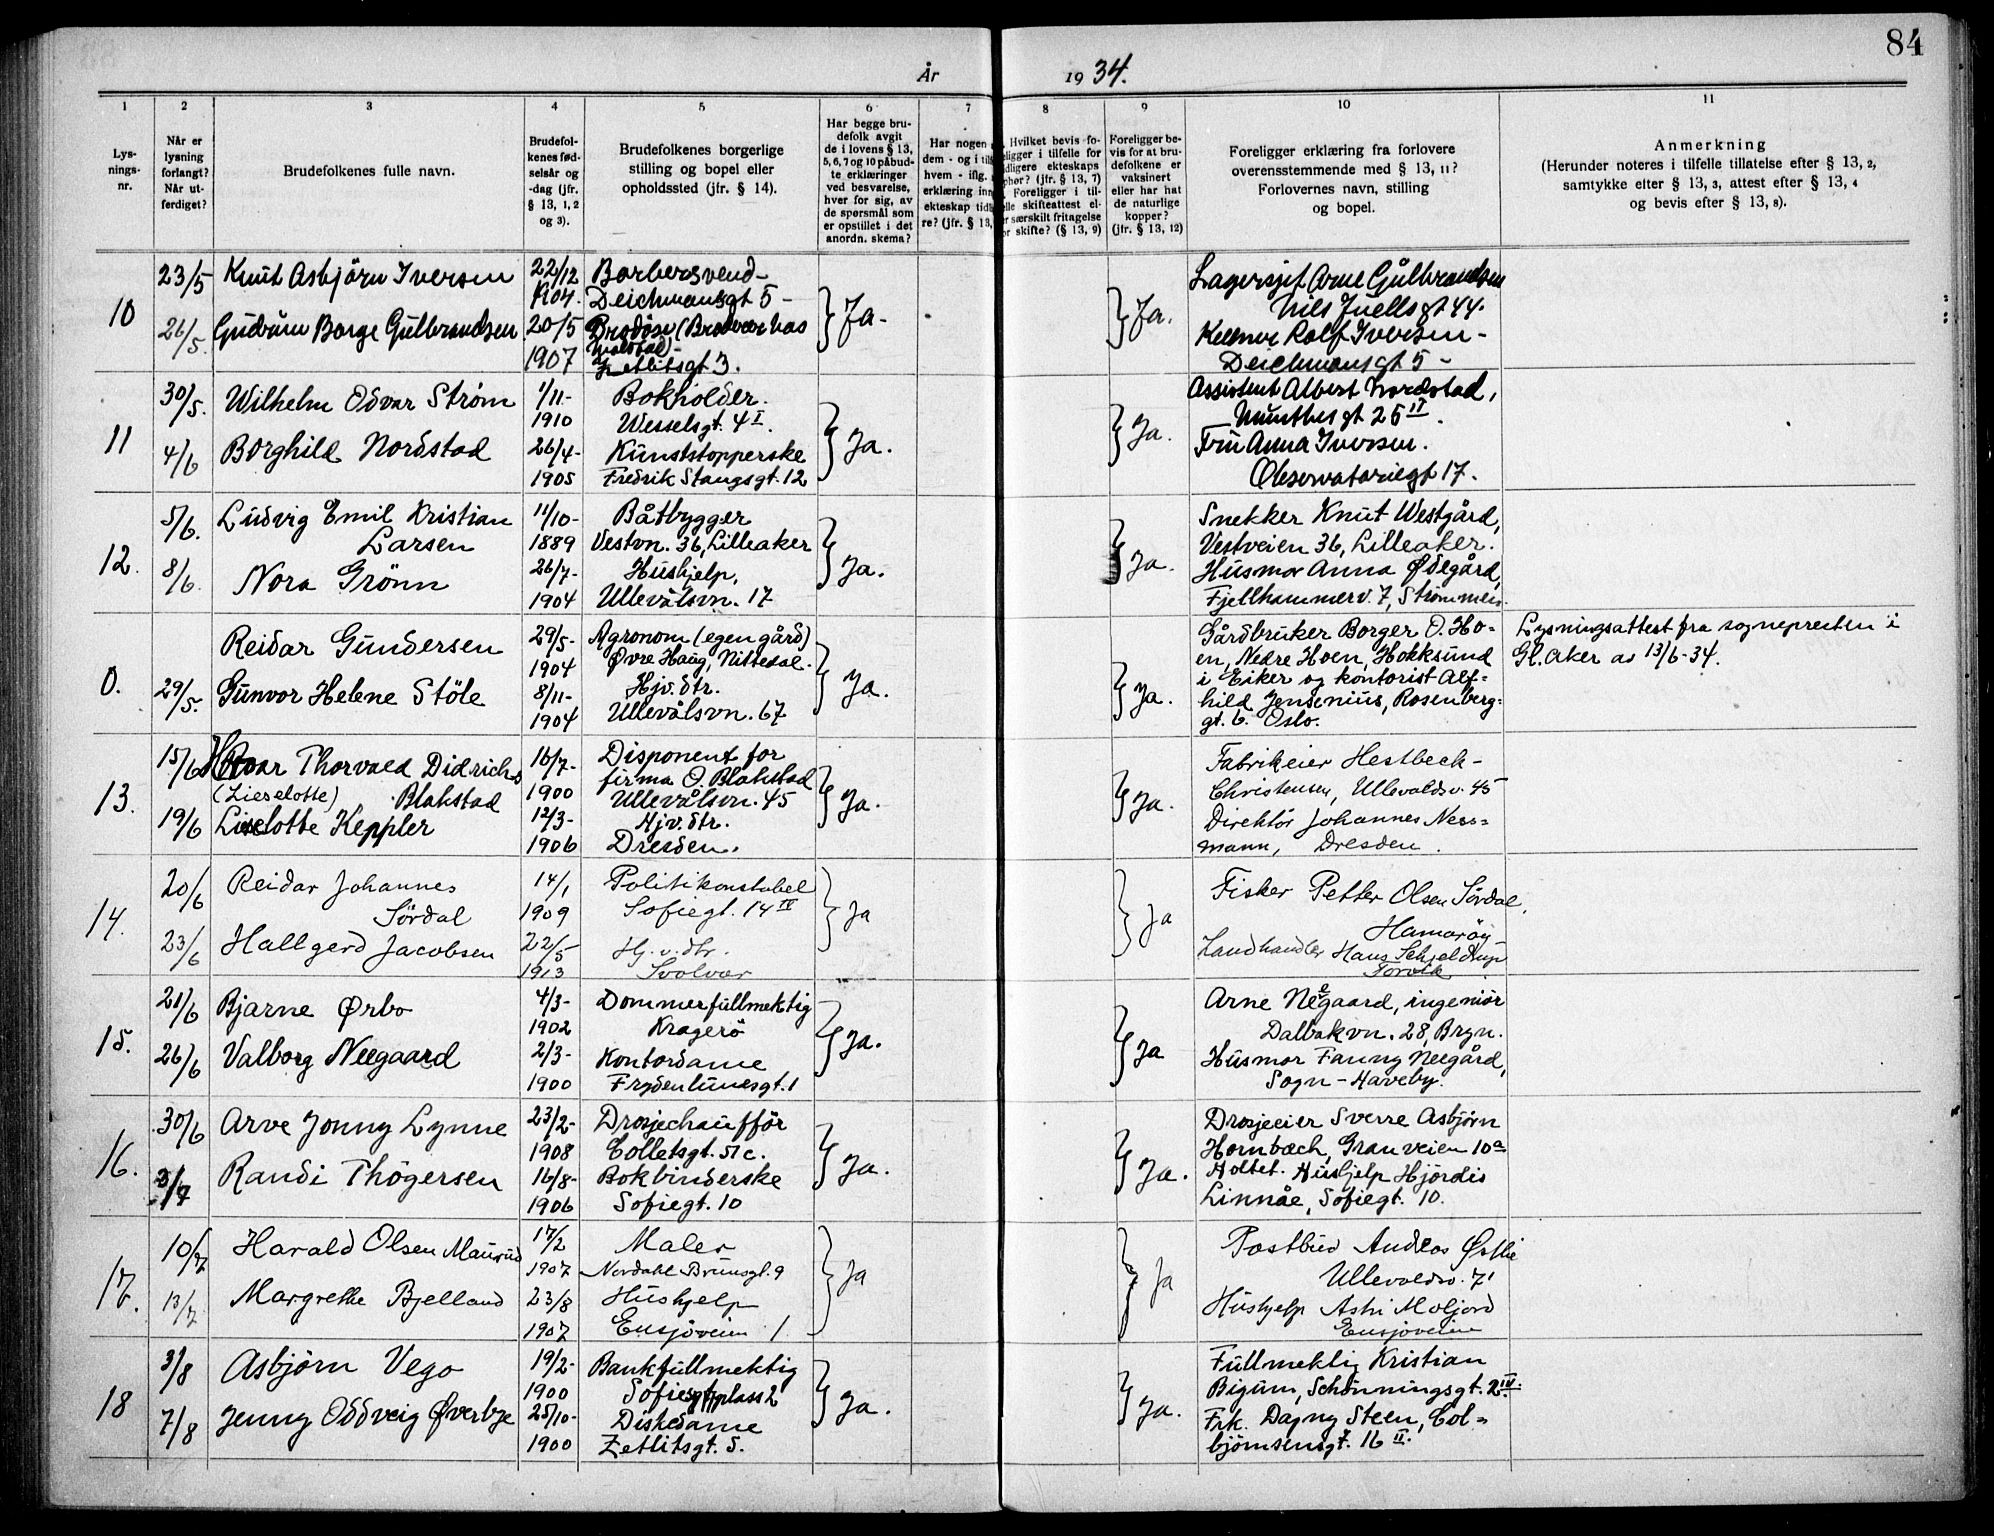 84
År 1934.
1 2 3 4 5 6 7 8 9 10 11
Lysningsnr.
Når er lysning forlangt? Når utferdiget?
Brudefolkenes fulle navn.
Brudefolkenes fødselsår og -dag (jfr. § 13, 1, 2 og 3).
Brudefolkenes borgerlige stilling og bopel eller opholdssted (jfr. § 14).
Har begge brudefolk avgit de i lovens § 13, 5, 6, 7 og 10 påbudte erklæringer ved besvarelse, hver for sig, av de spørsmål som er opstillet i det anordn. skema?
Har nogen
dem - og i til
hvem - iflg.
erklæring inn
ekteskap tidl
re? (jfr. § 13,
Hvilket bevis fo-
eligger i tilfelle for
dligere ekteskaps
phør? (jfr. § 13, 7)
Foreligger i til-
elle skifteattest el-
r særskilt fritagelse
or skifte? (§ 13, 9)
Foreligger bevis for at brudefolkene er vaksinert eller har hat de naturlige kopper? (jfr. § 13, 12)
Foreligger erklæring fra forlovere overensstemmende med § 13, 11? Forlovernes navn, stilling og bopel.
Anmerkning
(Herunder noteres i tilfelle tillatelse efter § 13, 2,
samtykke efter § 13, 3, attest efter § 13, 4
og bevis efter § 13, 8).
10
23/5
26/5.
Knut Asbjörn Iversen
Gudrun Borge Gulbrandsen
22/12
1904.
20/5
1907
Barbersvend-
Deichmansgt 5 -
Zetlitsgt 3.
Ja.
Ja.
Lagersjef Arne Gulbrandsen
Nils Juells gt 44.
Kelner Rolf Iversen -
Deichmansgt 5 -
11
30/5.
4/6
Wilhelm Odvar Strøm
Borghild Nordstad
1/11-
1910
26/4-
1905
Bokholder.
Wesselsgt. 4 I.
Kunststopperske
Fredrik Stangsgt. 12
Ja.
Ja.
Assistent Albert Nordstad,
Munthesgt 25 II.
Fru Anna Iversen.
Observatoriegt 17.
12.
5/6.
8/6.
Ludvig Emil Kristian
Larsen
Nora Grönn
11/10-
1889
26/7-
1904
Båtbygger
Vestvn. 36, Lilleaker
Hushjelp,
Ullevålsvn. 17
Ja.
Ja.
Snekker Knut Westgård,
Vestveien 36, Lilleaker.
Husmor Anna Ødegård,
Fjellhammerv. 7, Strømmen.
0.
29/5.
Reidar Gundersen
Gunvor Helene Stöle
29/5-
1904
8/11-
1904
Agronom (egen gård)
Øvre Haug, Nittedal.
Hjv. dtr.
Ullevålsvn. 67
Ja.
Ja.
Gårdbruker Borger O. Ho-
en, Nedre Hoen, Hokksund
i Eiker og kontorist Alf-
hild Jensenius, Rosenberg-
gt. 6. Oslo.
Lysningsattest fra sognepresten i
Gl. Aker av 13/6-34.
13.
15/6
19/6
Thorvald Didrichs
(Lieselotte) Blakstad
Liselotte Keppler
16/7-
1900
12/3-
1906
Disponent for
firma O. Blakstad
Ullevålsvn. 45
Hjv. dtr.
Dresden.
Ja.
Ja.
Fabrikeier Hestbeck-
Christensen, Ullevoldsv. 45
Direktör Johannes Ness-
mann, Dresden.
14.
20/6
23/6
Reidar Johannes
Sördal
Hallgerd Jacobsen
14/1
1909
22/5
1913
Politikonstabel
Sofiegt. 14 IV
Hj. v. dtr.
Svolvær
Ja
Ja
Fisker Petter Olsen Sördal,
Hamaröy
Landhandler Hans Schjeldrup
15.
21/6
26/6
Bjarne Ørbo
Valborg Neegaard
4/3-
1902
2/3-
1900
Dommerfullmektig
Kragerö
Kontordame
Frydenlundsgt. 1
Ja.
Ja
Arne Neegaard, ingeniör
Dalbakvn. 28, Bryn.
Husmor Fanny Neegård,
Sogn - Haveby.
16.
30/6
3/7
Arve Jonny Lynne
Randi Thögersen
23/2-
1908
16/8-
1906
Drosjechaufför
Colletsgt. 51c.
Bokbinderske
Sofiegt. 10
Ja.
Ja.
Drosjeeier Sverre Asbjörn
Hornbæch, Granveien 10a
Holtet. Hushjelp Hjördis
Linnåe, Sofiegt. 10.
17.
10/7
13/7
Harald Olsen Maurud
Margrethe Bjelland
17/2
1907
23/8
1907
Maler
Nordahl Brunsgt. 9
Hushjelp
Ensjöveien 1
Ja
Ja
Postbud Andeas Østlie
Ullevoldsv. 71
Hushjelp Astri Moljord
Ensjöveien
18
3/8
7/8
Asbjörn Vego
Jenny Oddveig Øverbye
19/2-
1900
25/10-
1900
Bankfullmektig
Sofies plass 2
Diskedame
Zetlitsgt. 5.
Ja.
Ja.
Fullmektig Kristian
Bigum, Schönningsgt. 2 IV
Frk. Dagny Steen, Col-
björnsensgt. 16 II.